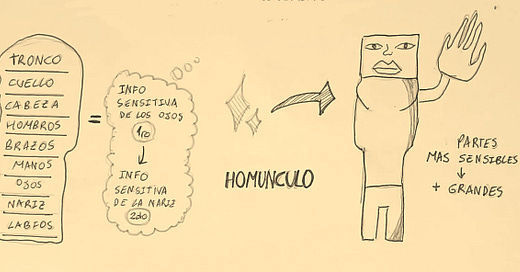 TRONCO
CUELLO
CABEZA
HOMBROS
BRAZOS
MANOS
OJOS
NARIZ
LABFOS
=
INFO
SENSITIVA
DE LOS OJOS
1ro
INFO
SENSITIVA
DE LA NARIZ
2do
HOMUNCULO
PARTES
MAS SENSIBLES
+ GRANDES